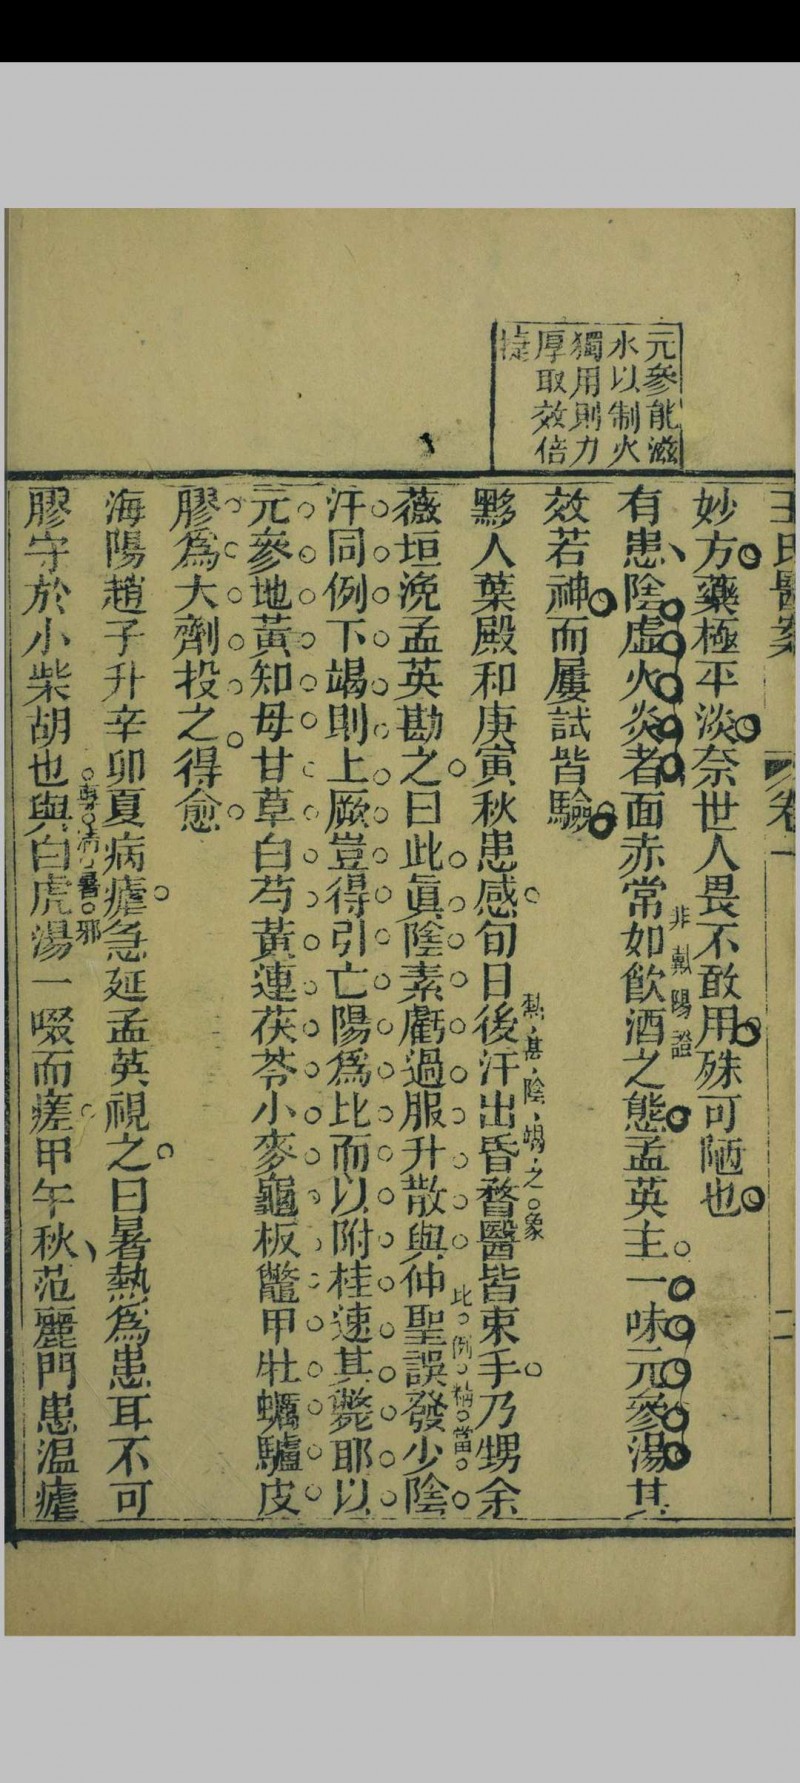 王氏醫案
卷一
二
元參能滋
水以制火
獨用則力
厚取效倍
捷
妙方藥極平淡奈世人畏不敢用殊可陋也
有患陰虛火炎者面赤常如飲酒之態孟英主一味元參湯其
非戴陽證
效若神而屢試皆驗
黟人葉殿和庚寅秋患感旬日後汗出昏瞀醫皆束手乃甥余
熱甚陰竭之象
薇垣浼孟英勘之曰此眞陰素虧過服升散與仲聖誤發少陰
比例精當
汗同例下竭則上厥豈得引亡陽爲比而以附桂速其斃耶以
元參地黃知母甘草白芍黃連茯苓小麥龜板鼈甲牡蠣驢皮
膠爲大劑投之得愈
海陽趙子升辛卯夏病瘧急延孟英視之曰暑熱爲患耳不可
膠守於小柴胡也與白虎湯一啜而瘥甲午秋范麗門患温瘧
專清暑邪